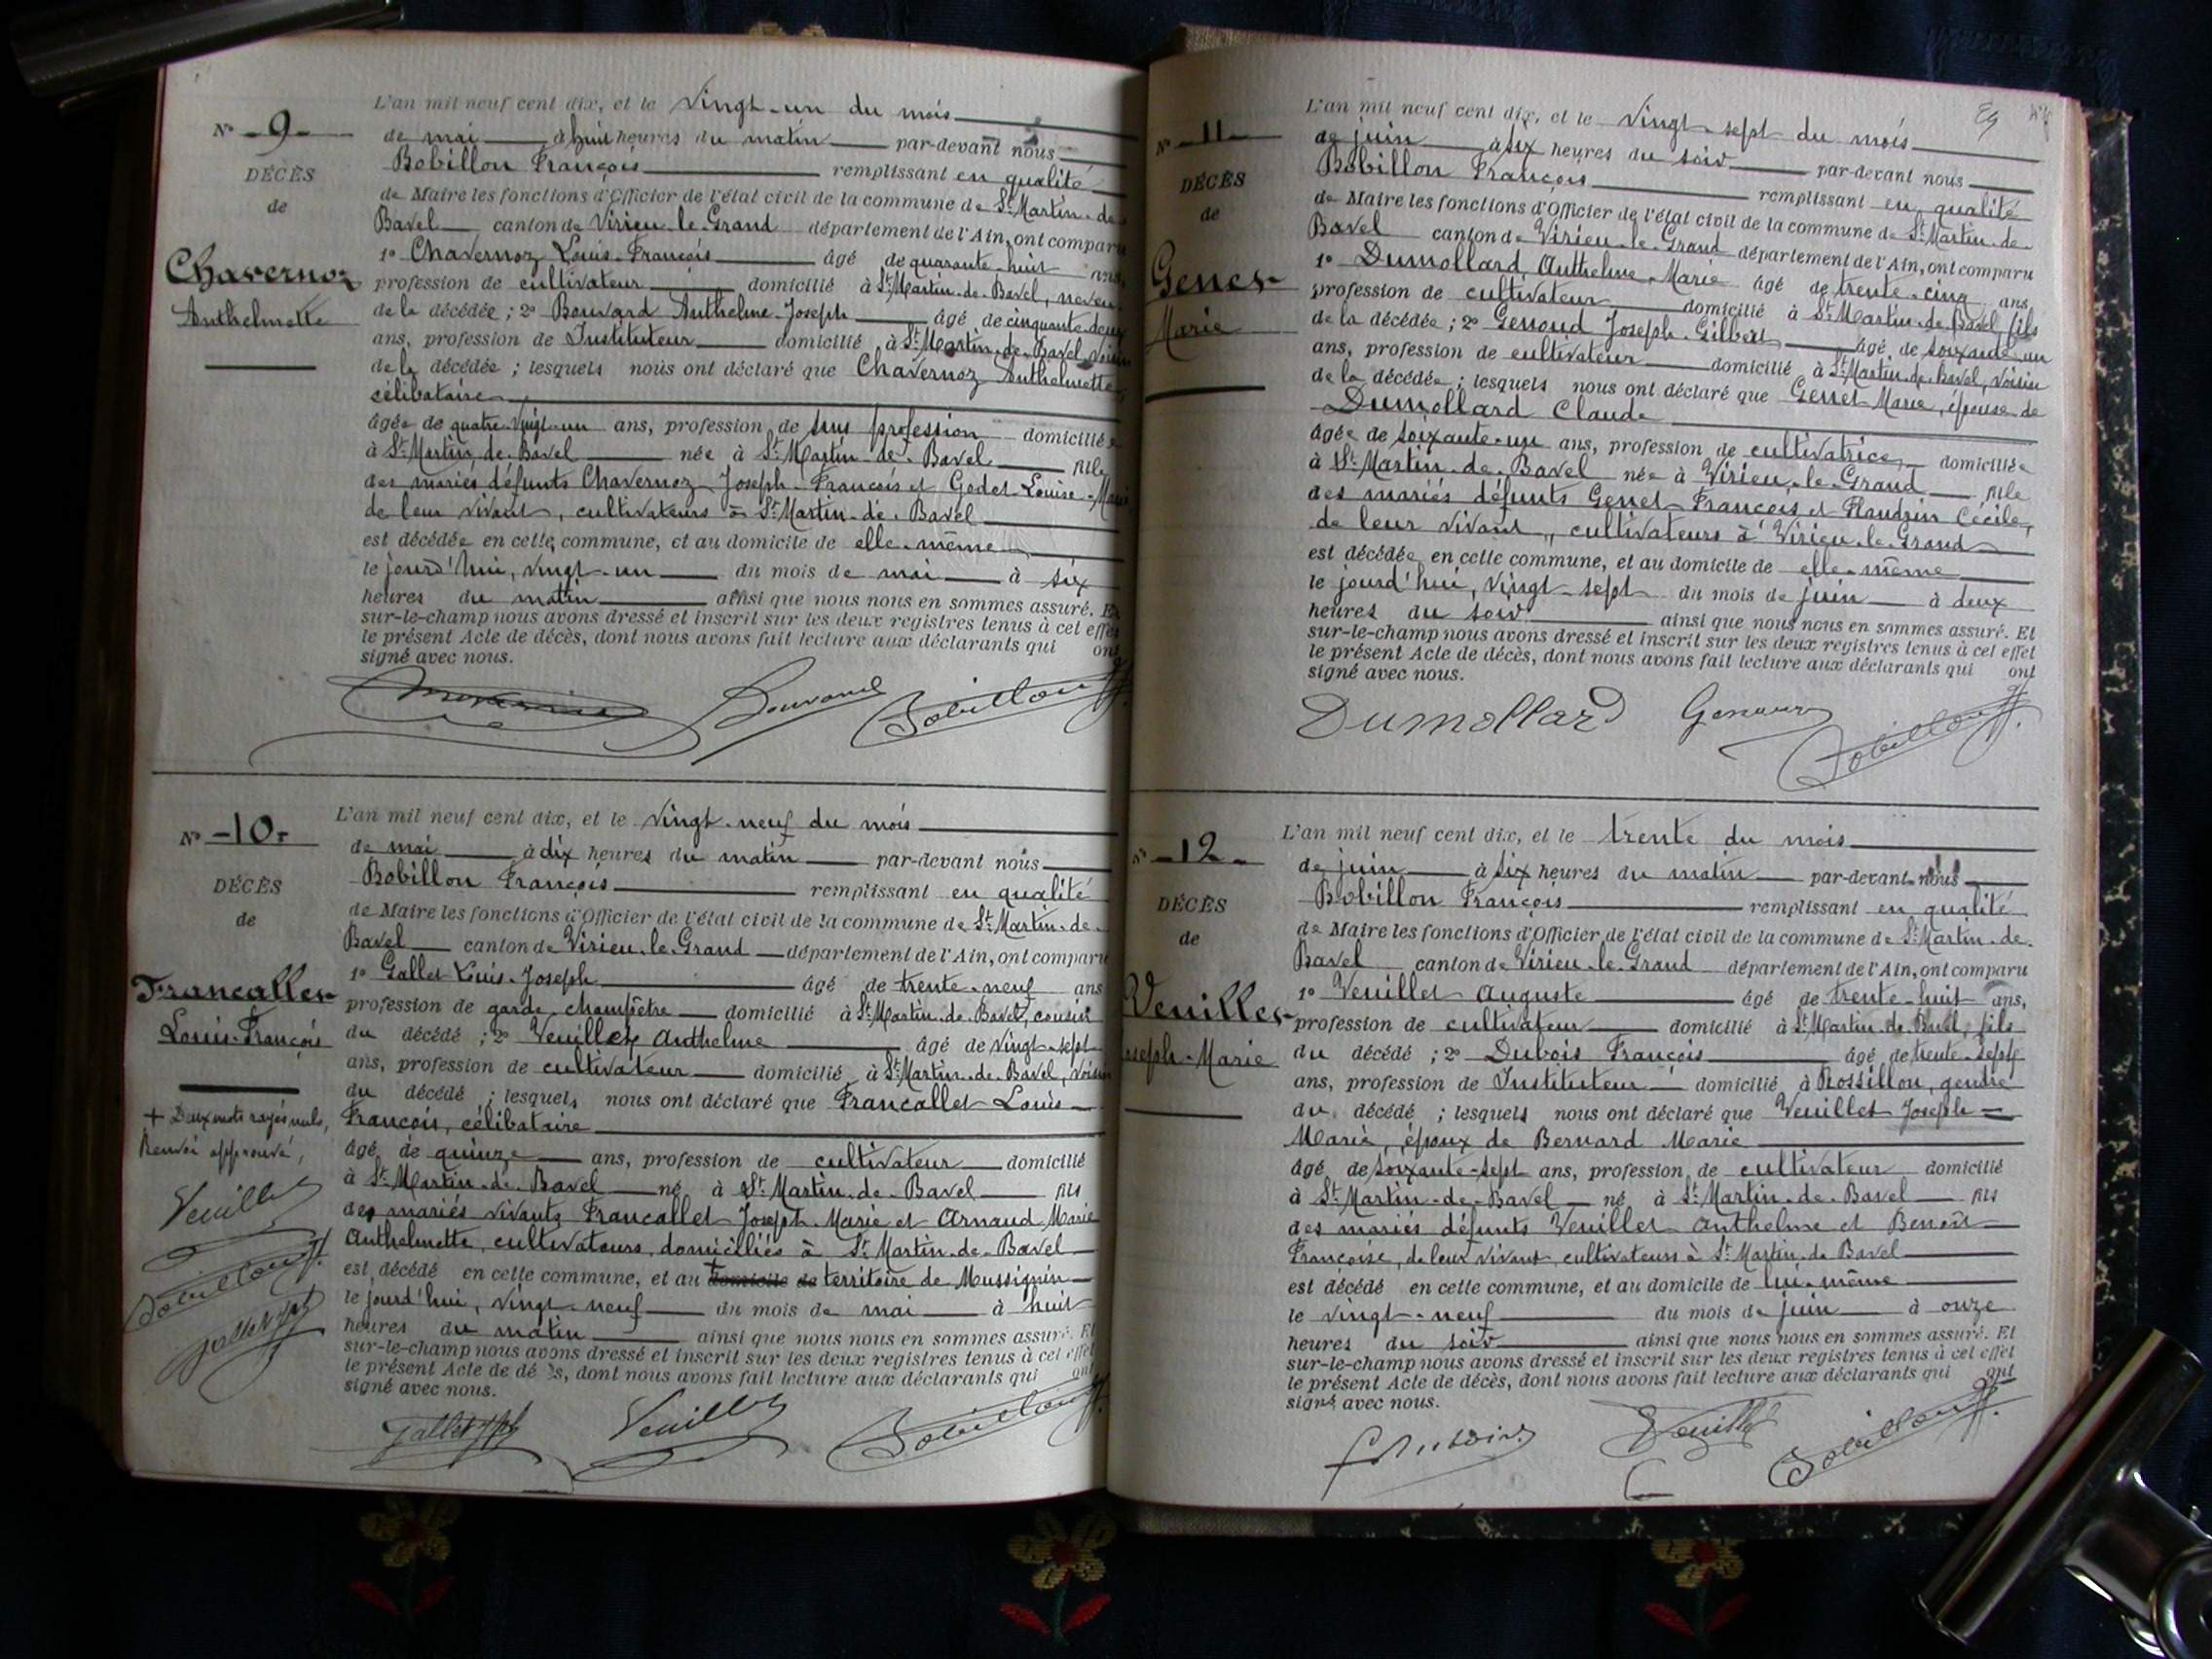 N° -9-
DÉCÈS
de
Chavernoz
Anthelmette
L'an mil neuf cent dix, et le vingt-un du mois
de mai à huit heures du matin par-devant nous
Bobillon François remplissant en qualité
de Maire les fonctions d'Officier de l'état civil de la commune de St Martin-de-
Bavel canton de Virieu-le-Grand département de l'Ain, ont comparu
1° Chavernoz Louis-François âgé de quarante-huit ans,
profession de cultivateur domicilié à St Martin-de-Bavel, neveu
de la décédée ; 2° Bouvard Anthelme-Joseph âgé de cinquante-deux
ans, profession de Instituteur domicilié à St Martin-de-Bavel voisin
de la décédée ; lesquels nous ont déclaré que Chavernoz Anthelmette
célibataire
âgée de quatre-vingt-un ans, profession de sans profession domiciliée
à St Martin-de-Bavel née à St Martin-de-Bavel fille
des mariés défunts Chavernoz Joseph-François et Godet Louise-Marie
de leur vivant, cultivateurs à St Martin-de-Bavel
est décédée en cette commune, et au domicile de elle-même
le jourd'hui, vingt-un du mois de mai à six
heures du matin ainsi que nous nous en sommes assuré. Et
sur-le-champ nous avons dressé et inscrit sur les deux registres tenus à cet effet
le présent Acte de décès, dont nous avons fait lecture aux déclarants qui ont
signé avec nous.
Bouvard Bobillon
N° -10-
DÉCÈS
de
Francallet
Louis-François
+ Deux mots rayés nuls,
Renvoi approuvé,
Veuillet
Bobillon
L'an mil neuf cent dix, et le vingt-neuf du mois
de mai à dix heures du matin par-devant nous
Bobillon François remplissant en qualité
de Maire les fonctions d'Officier de l'état civil de la commune de St Martin-de-
Bavel canton de Virieu-le-Grand département de l'Ain, ont comparu
1° Gallet Louis-Joseph âgé de trente-neuf ans
profession de garde champêtre domicilié à St Martin-de-Bavel, cousin
du décédé ; 2° Veuillet Anthelme âgé de vingt-sept
ans, profession de cultivateur domicilié à St Martin-de-Bavel, voisin
du décédé ; lesquels nous ont déclaré que Francallet Louis-
François, célibataire
âgé de quinze ans, profession de cultivateur domicilié
à St Martin-de-Bavel né à St Martin-de-Bavel fils
des mariés vivants Francallet Joseph-Marie et Arnaud Marie
Anthelmette, cultivateurs, domiciliés à St Martin-de-Bavel
est décédé en cette commune, et au + domicile de territoire de Mussignin
le jourd'hui, vingt-neuf du mois de mai à huit
heures du matin ainsi que nous nous en sommes assuré. Et
sur-le-champ nous avons dressé et inscrit sur les deux registres tenus à cet effet
le présent Acte de décès, dont nous avons fait lecture aux déclarants qui ont
signé avec nous.
Gallet Veuillet Bobillon
89
N° -11-
DÉCÈS
de
Genet
Marie
L'an mil neuf cent dix, et le vingt-sept du mois
de juin à six heures du soir par-devant nous
Bobillon François remplissant en qualité
de Maire les fonctions d'Officier de l'état civil de la commune de St Martin-de-
Bavel canton de Virieu-le-Grand département de l'Ain, ont comparu
1° Dumollard Anthelme-Marie âgé de trente-cinq ans,
profession de cultivateur domicilié à St Martin-de-Bavel, fils
de la décédée ; 2° Genoud Joseph-Gilbert âgé de soixante-un
ans, profession de cultivateur domicilié à St Martin-de-Bavel, voisin
de la décédée ; lesquels nous ont déclaré que Genet Marie, épouse de
Dumollard Claude
âgée de soixante-un ans, profession de cultivatrice domiciliée
à St Martin-de-Bavel née à Virieu-le-Grand fille
des mariés défunts Genet François et Flandrin Cécile,
de leur vivant, cultivateurs à Virieu-le-Grand
est décédée en cette commune, et au domicile de elle-même
le jourd'hui, vingt-sept du mois de juin à deux
heures du soir ainsi que nous nous en sommes assuré. Et
sur-le-champ nous avons dressé et inscrit sur les deux registres tenus à cet effet
le présent Acte de décès, dont nous avons fait lecture aux déclarants qui ont
signé avec nous.
Dumollard Genoud Bobillon
N° -12-
DÉCÈS
de
Veuillet
Joseph-Marie
L'an mil neuf cent dix, et le trente du mois
de juin à six heures du matin par-devant nous
Bobillon François remplissant en qualité
de Maire les fonctions d'Officier de l'état civil de la commune de St Martin-de-
Bavel canton de Virieu-le-Grand département de l'Ain, ont comparu
1° Veuillet Auguste âgé de trente-huit ans,
profession de cultivateur domicilié à St Martin-de-Bavel, fils
du décédé ; 2° Dubois François âgé de trente-sept
ans, profession de Instituteur domicilié à Rossillon, gendre
du décédé ; lesquels nous ont déclaré que Veuillet Joseph-
Marie, époux de Bernard Marie
âgé de soixante-sept ans, profession de cultivateur domicilié
à St Martin-de-Bavel né à St Martin-de-Bavel fils
des mariés défunts Veuillet Anthelme et Benoît
Françoise, de leur vivant cultivateurs à St Martin-de-Bavel
est décédé en cette commune, et au domicile de lui-même
le vingt-neuf du mois de juin à onze
heures du soir ainsi que nous nous en sommes assuré. Et
sur-le-champ nous avons dressé et inscrit sur les deux registres tenus à cet effet
le présent Acte de décès, dont nous avons fait lecture aux déclarants qui ont
signé avec nous.
F Dubois Veuillet Bobillon